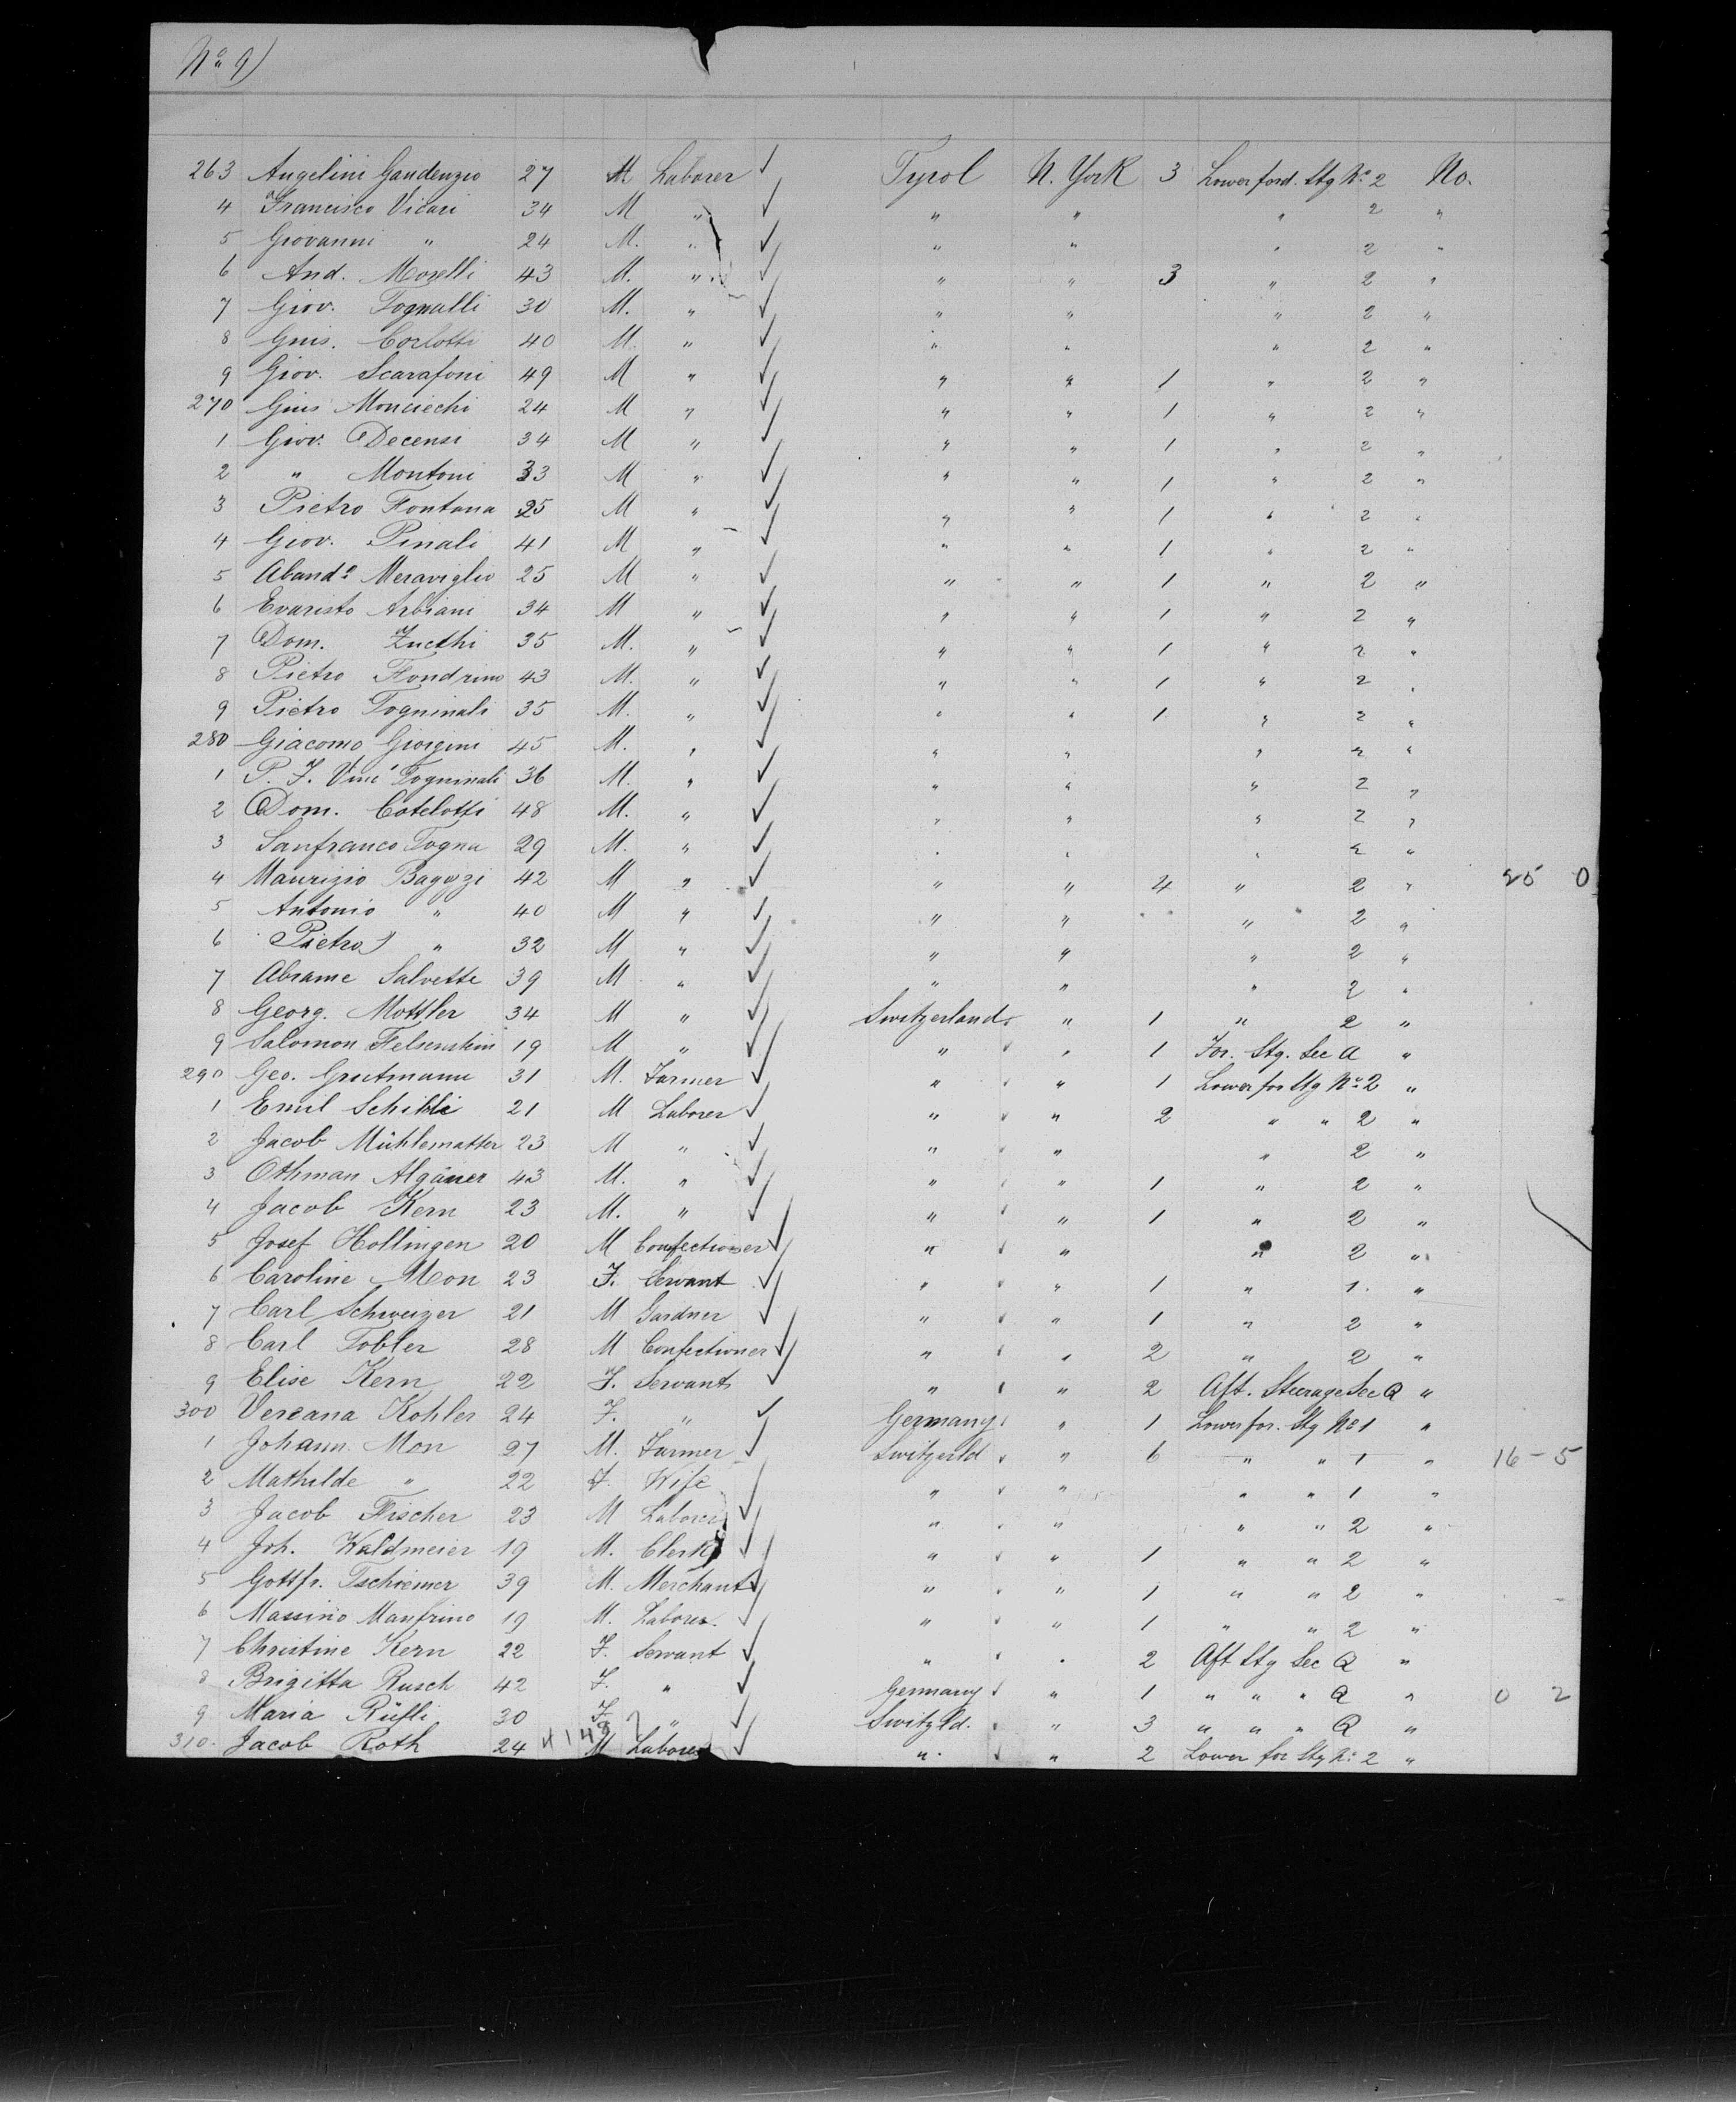 No 9)
263 Angelini Gaudenzio 27 M Laborer ✓ Tyrol N. York 3 Lower ford. Stg No 2 No.
4 Francisco Vicari 34 M " ✓ " " " 2 "
5 Giovanni " 24 M. " ✓ " " " 2 "
6 And. Morelli 43 M. " ✓ " " 3 " 2 "
7 Giov. Tognalli 30 M. " ✓ " " " 2 "
8 Gius. Corlotti 40 M. " ✓ " " " 2 "
9 Giov. Scarafoni 49 M " ✓ " " 1 " 2 "
270 Gius Moncecchi 24 M " ✓ " " 1 " 2 "
1 Giov. Decensi 34 M " ✓ " " 1 " 2 "
2 " Montoni 33 M " ✓ " " 1 " 2 "
3 Pietro Fontana 25 M " ✓ " " 1 " 2 "
4 Giov. Pinali 41 M " ✓ " " 1 " 2 "
5 Aband° Meraviglio 25 M " ✓ " " 1 " 2 "
6 Evaristo Arbiani 34 M " ✓ " " 1 " 2 "
7 Dom. Zucchi 35 M. " ✓ " " 1 " 2 "
8 Pietro Fondrini 43 M. " ✓ " " 1 " 2 "
9 Pietro Togninali 35 M. " ✓ " " 1 " 2 "
280 Giacomo Giorgini 45 M. " ✓ " " " 2 "
1 P. F. Vinc Togninali 36 M. " ✓ " " " 2 "
2 Dom. Cotelotti 48 M. " ✓ " " " 2 "
3 Sanfranco Togna 29 M. " ✓ " " " 2 "
4 Maurizio Bagozzi 42 M " ✓ " " 4 " 2 " 25 0
5 Antonio " 40 M " ✓ " " " 2 "
6 Pietro " 32 M " ✓ " " " 2 "
7 Abrame Salvette 39 M " ✓ " " " 2 "
8 Georg. Mottler 34 M " ✓ Switzerland " 1 " 2 "
9 Salomon Felsenstein 19 M " ✓ " " 1 For. Stg. Sec A "
290 Geo. Grutmann 31 M. Farmer ✓ " " 1 Lower for Stg No 2 "
1 Emil Schibli 21 M Laborer ✓ " " 2 " " 2 "
2 Jacob Mühlematter 23 M " ✓ " " " 2 "
3 Othman Algäuer 43 M. " ✓ " " 1 " 2 "
4 Jacob Kern 23 M. " ✓ " " 1 " 2 "
5 Josef Hollingen 20 M Confectioner ✓ " " " 2 "
6 Caroline Mon 23 F. Servant ✓ " " 1 " 1. "
7 Carl Schweizer 21 M Gardner ✓ " " 1 " 2 "
8 Carl Tobler 28 M Confectioner ✓ " " 2 " 2 "
9 Elise Kern 22 F. Servant ✓ " " 2 Aft. Steerage Sec Q "
300 Vereana Kohler 24 F. " ✓ Germany " 1 Lower for. Stg No 1 "
1 Johann. Mon 27 M. Farmer ✓ Switzerld " 6 " " 1 " 16 - 5
2 Mathilde " 22 F. Wife ✓ " " " " 1 "
3 Jacob Fischer 23 M Laborer ✓ " " " " 2 "
4 Joh. Waldmeier 19 M. Clerk ✓ " " 1 " " 2 "
5 Gottfr. Tschiemer 39 M. Merchant ✓ " " 1 " " 2 "
6 Massino Manfrino 19 M. Laborer ✓ " " 1 " " 2 "
7 Christine Kern 22 F. Servant ✓ " " 2 Aft Stg Sec Q "
8 Brigitta Rusch 42 F. " ✓ Germany " 1 " " " Q " 0 2
9 Maria Rüfli 30 F " ✓ Switzld. " 3 " " " Q "
310. Jacob Roth 24 M Laborer ✓ " " 2 Lower for Stg No 2 "